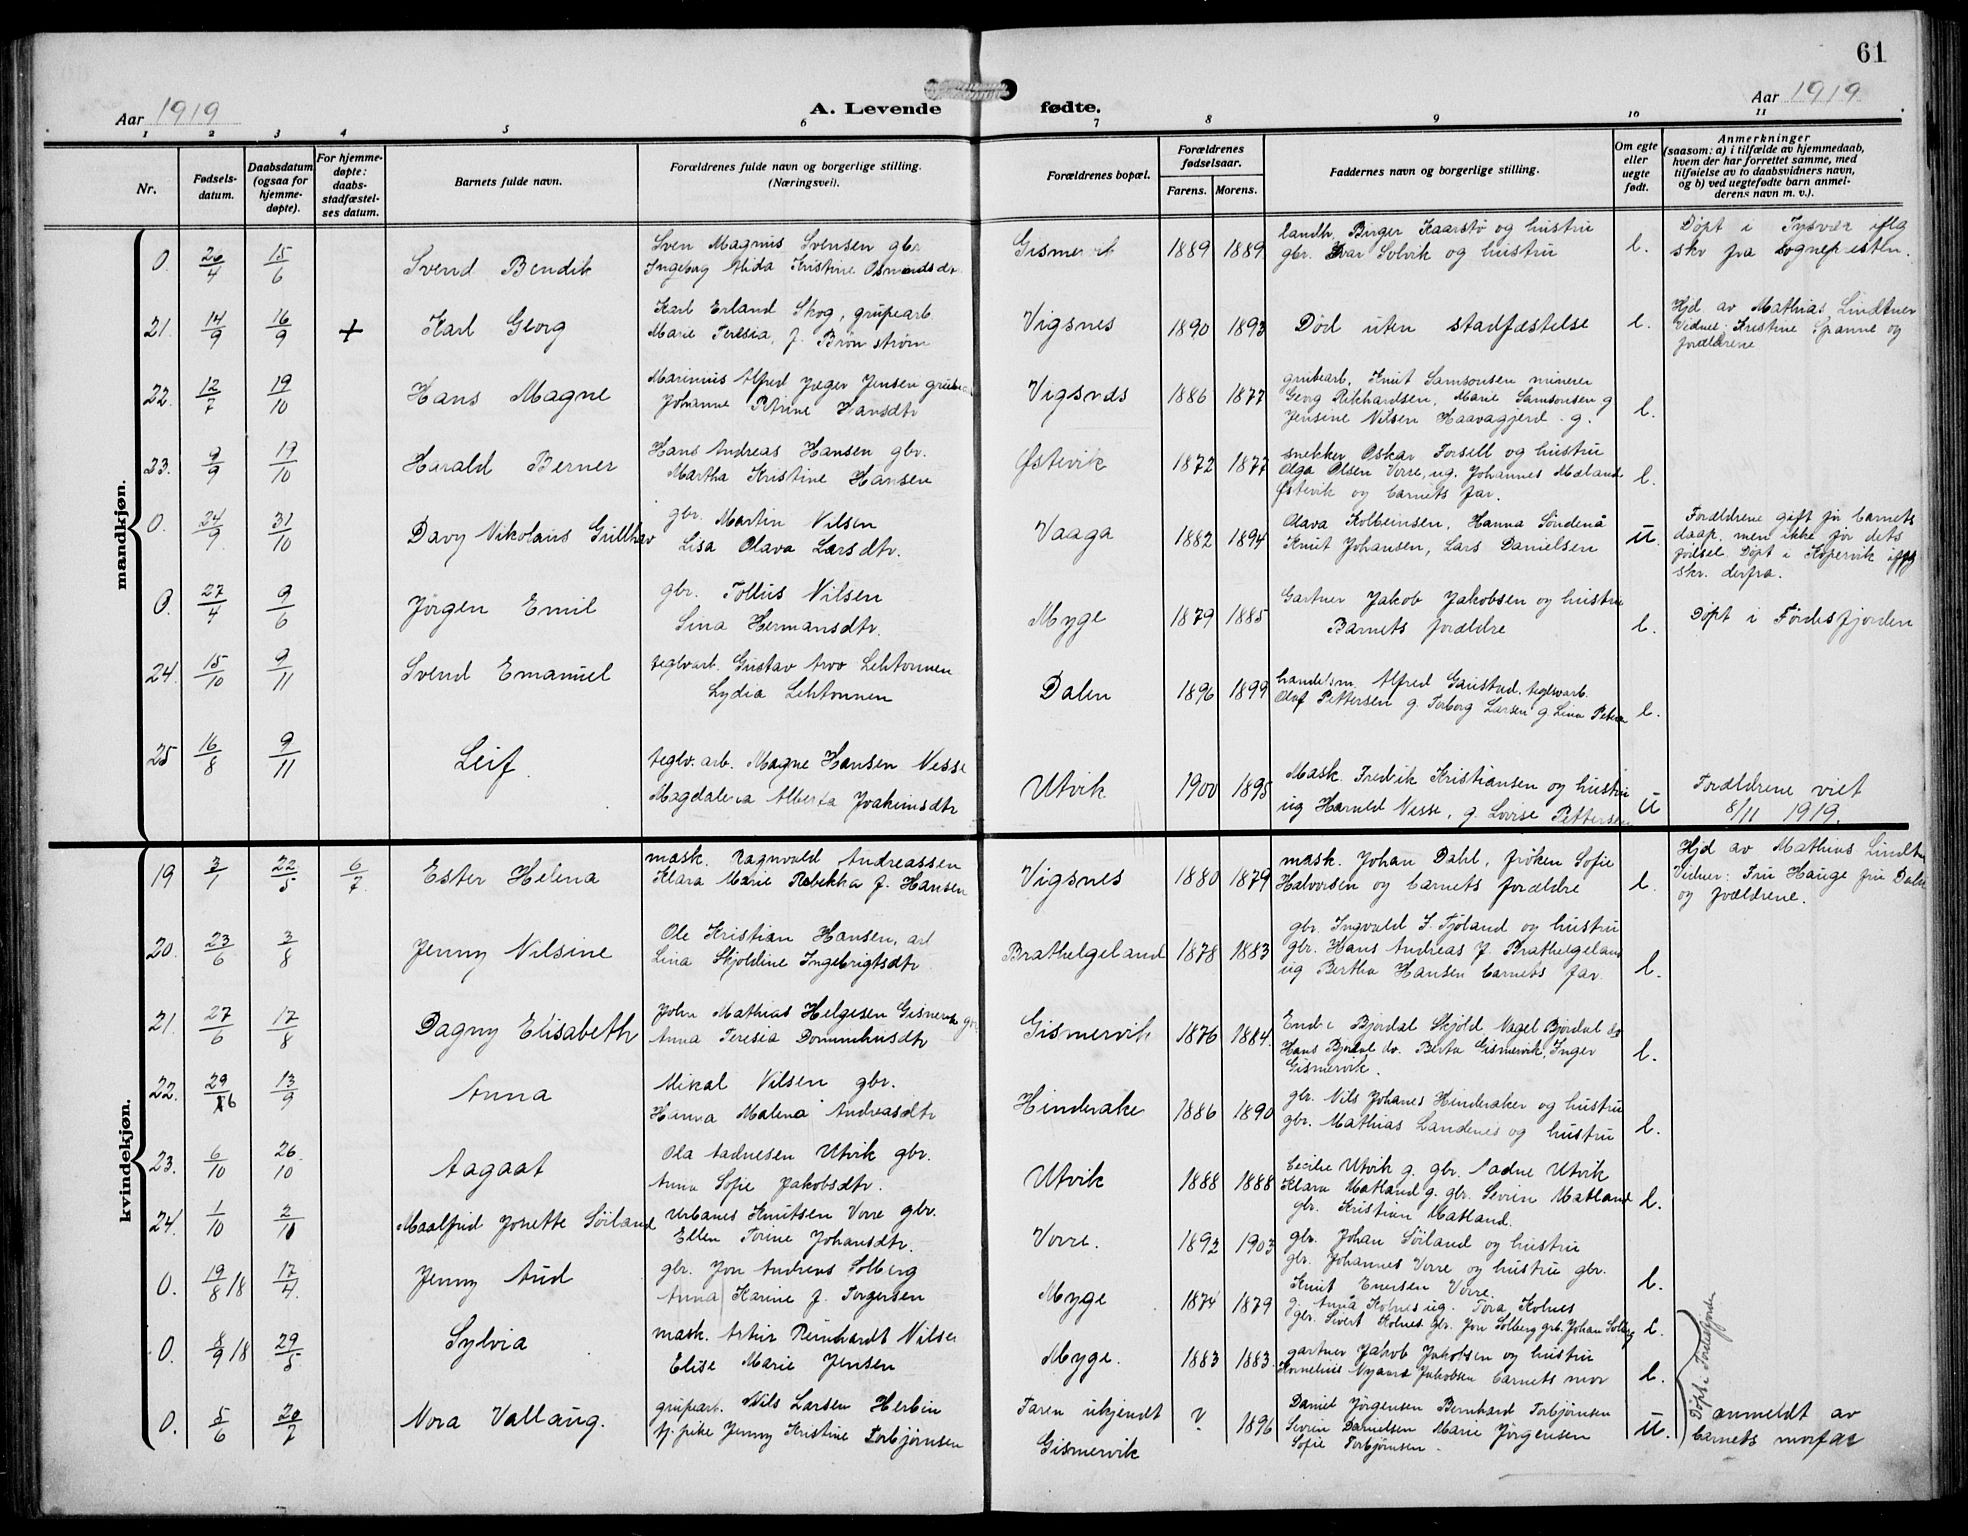 61
Aar 1919
A. Levende fødte.
Aar 1919
1 2 3 4 5 6 7 8 9 10 11
Nr.
Fødsels-
datum.
Daabsdatum
(ogsaa for
hjemme-
døpte).
For hjemme-
døpte:
daabs-
stadfæstel-
ses datum.
Barnets fulde navn.
Forældrenes fulde navn og borgerlige stilling.
(Næringsvei).
Forældrenes bopæl.
Forældrenes
fødselsaar.
Farens. Morens.
Faddernes navn og borgerlige stilling.
Om egte
eller
uegte
født.
Anmerkninger
(saasom: a) i tilfælde av hjemmedaab,
hvem der har forrettet samme, med
tilføielse av to daabsvidners navn,
og b) ved uegtefødte barn anmel-
derens navn m. v.).
mandkjøn.
0. 26/4 15/6 Svend Bendik
Sven Magnus Svensen gbr
Ingeborg Alida Kristine Osmundsdtr
Gismervik 1889 1889
landh. Birger Kaarstø og hustru
gbr. Ivar Solvik og hustru
e.
Døpt i Tysvær iflg
skr fra sognepresten.
21. 14/9 16/9 + Karl Georg
Karl Erland Skog, grupearb
Marie Teresia, f. Brønstrøm
Vigsnes 1890 1893
Død uten stadfæstelse
e.
Hjd. av Mathias Lindtner
Vidner: Kristine Spanne og
forældrene
22. 12/7 19/10 Hans Magne
Marinius Alfred Jæger Jensen
Johanne Petrine Hansdtr
Vigsnes 1886 1877
grubearb. Knut Samsonsen minerer
Georg Rikhardsen, Marie Samsonsen g
Jensine Nilsen Haavagjerd g.
e.
23. 9/9 19/10 Harald Berner
Hans Andreas Hansen gbr.
Martha Kristine Hansen
Østevik 1872 1877
snekker Oskar Forsell og hustru
Olga Olsen Vorre, ug. Johannes Mæland
Østevik og barnets far.
e.
0. 24/9 31/10 Davy Nikolaus Gullhav
gbr. Martin Nilsen
Lisa Olava Larsdtr.
Vaaga 1882 1894
Olava Kolbeinsen, Hanna Søndenå
Knut Johansen, Lars Danielsen
u.
Forældrene gift før barnets
daap, men ikke før dets
fødsel. Døpt i Kopervik iflg
skr. derfra.
0. 27/4 9/6 Jørgen Emil
gbr. Tollus Nilsen
Sina Hermansdtr.
Myge 1879 1885
Gartner Jakob Jakobsen og hustru
Barnets forældre
e.
Døpt i Førdesfjorden
24. 15/10 9/11 Svend Emanuel
teglvarb. Gustav Arvo Lehtonnen
Lydia Lehtonnen
Dalen 1896 1899
handelsm. Alfred Gaustad. teglvarb.
Olaf Pettersen g Torborg Larsen g. Lina
e.
25 16/8 9/11 Leif.
teglv. arb. Magne Hansen Nesse
Magdalena Alberta Joakimsdtr
Utvik 1900 1895
Mask. Fredrik Kristiansen og hustru
ug Harald Nesse, g. Lovise Pettersen
u
Forældrene viet
8/11 1919.
kvindekjøn.
19 3/1 22/5 6/7. Ester Helena
mask. Ragnvald Andreassen
Klara Marie Rebekka f. Hansen
Vigsnes 1880 1879
mask. Johan Dahl, frøken Sofie
Halvorsen og barnets forældre
e.
Hjd av Mathias Lindtn
Vidner: Fru Hauge fru Dale
og forældrene.
20. 23/6 3/8 Jenny Nilsine
Ole Kristian Hansen, arb
Lina Skjoldine Ingebrigtsdtr.
Brathelgeland 1878 1883
gbr. Ingvald S. Tjoland og hustru
gbr. Hans Andreas J. Brathelgeland
ug Bertha Hansen barnets far.
e.
21. 27/6 17/8 Dagny Elisabeth
John Mathias Helgesen Gismervik gbr
Anna Teresia Dommhusdtr
Gismervik 1876 1884.
Endre Bjordal Skjold, Nagel Bjordal do
Hans Bjordal do. Berta Gismervik, Inger
Gismervik.
e.
22. 29/6 13/9 Anna
Mikal Nilsen gbr.
Hanna Malena Andreasdtr
Hinderake 1886 1890
gbr. Nils Johanes Hinderaker og hustru
gbr. Mathias Landenes og hustru
e.
23. 6/10 26/10. Aagaat
Ola Aadnesen Utvik gbr.
Anna Sofie Jakobsdtr.
Utvik 1888 1888
Cecilie Utvik g. gbr. Aadne Utvik
Klara Matland g. gbr. Sevrin Matland
gbr. Kristian Matland.
e.
24. 1/10 2/11 Maalfrid Jonette Søiland
Urbanes Knutsen Vorre gbr.
Ellen Torine Johansdtr.
Vorre. 1892 1903
gbr. Johan Søiland og hustru
gbr. Johannes Vorre og hustru gbr.
Knut Enersen Vorre.
e.
0. 19/8 18 17/4. Jenny Aud
gbr. Jon Andreas Solberg
Anna Karine f. Torgersen
Myge 1874 1879
g. Anna Kolnes ug. Tora Kolnes
gbr. Sivert Kolnes gbr. Jon Solberg gbr. Johan Solberg
e.
0. 8/9 18 29/5 Sylvia
mask. Artur Reinhardt Nilsen
Elise Marie Jensen
Myge. 1883 1883.
gartner Jakob Jakobsen og hustru
Kornelius Nygaard Jakobsen barnets mor
e.
Døpt i Førdesfjorden
0. 5/6 20/7 Nora Vallaug.
grupearb. Nils Larsen Herbin
tj. pike Jenny Kristine Torbjørnsen
Faren ukjendt
Gismervik
? 1896
Daniel Jørgensen Bernhard Torbjørnsen
Sevrin Danielsen Marie Jørgensen
Sofie Torbjørnsen.
u.
anmeldt av
barnets morfar